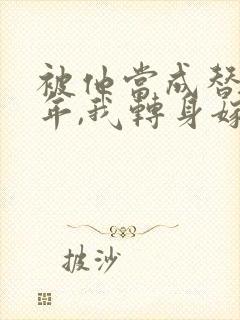 被他當成替
年,我轉身嫁
披沙